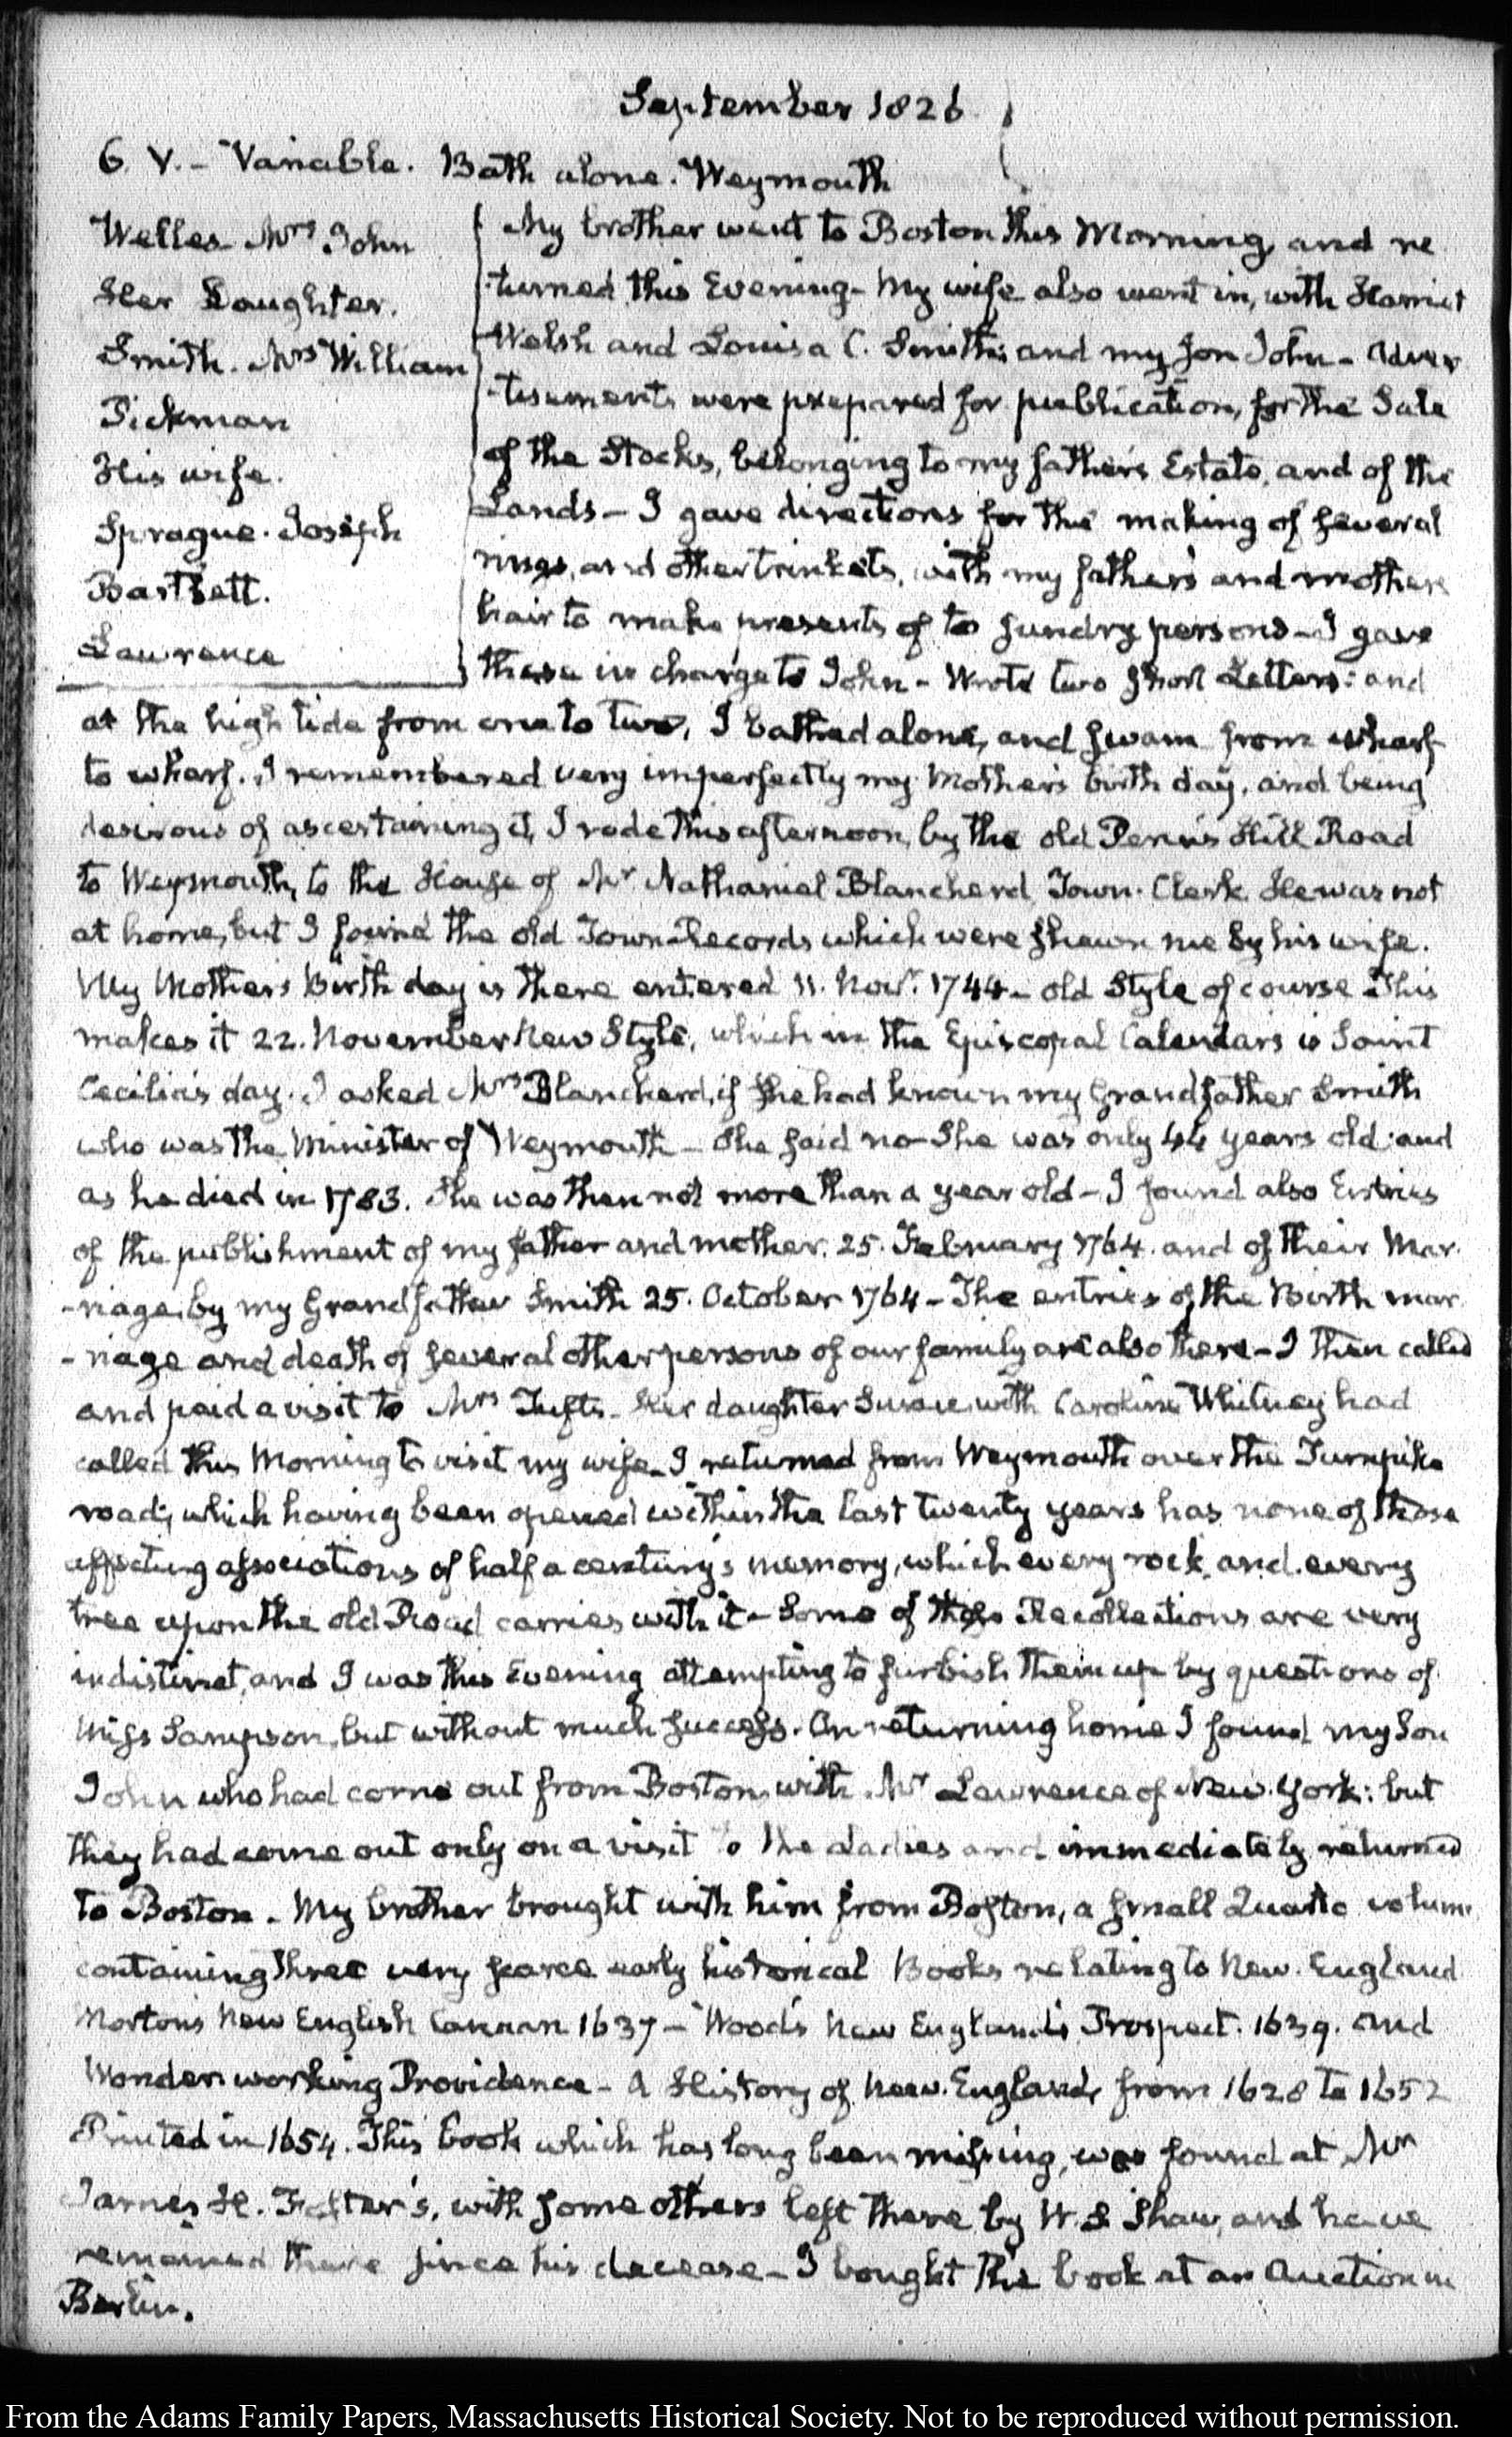 September 1826
6. V. - Variable. Bath alone. Weymouth
Welles Mrs John
Her Daughter.
Smith. Mrs William
Pickman
His wife.
Sprague. Joseph
Bartlett.
Lawrence
My brother went to Boston this Morning, and re
-turned this Evening- My wife also went in, with Harriet
Welsh and Louisa C. Smith; and my son John - Adver
-tisements were prepared for publication, for the Sale
of the Stocks, belonging to my father's Estate, and of the
Lands - I gave directions for the making of several
rings, and other trinkets, with my father's and mothers
hair to make presents of to sundry persons - I gave
these in charge to John - Wrote two short Letters: and
at the high tide from one to two, I bathed alone, and swam from wharf
to wharf. I remembered very imperfectly my Mother's birth day, and being
desirous of ascertaining it, I rode this afternoon, by the old Penn's Hill Road
to Weymouth, to the House of Mr Nathaniel Blancherd Town-Clerk. He was not
at home, but I found the old Town-Records which were shewn me by his wife.
My Mother's Birth day is there entered 11. Novr. 1744 - old Style of course This
makes it 22. November New Style, which in the Episcopal Calendars is Saint
Cecilia's day. I asked Mrs Blancherd, if she had known my Grandfather Smith
who was the Minister of Weymouth - She said no - She was only 44 years old: and
as he died in 1783. She was then not more than a year old - I found also Entries
of the publishment of my father and mother. 25. February 1764. and of their Mar
-riage, by my Grandfather Smith 25. October 1764 - The entries of the Birth mar
-riage and death of several other persons of our family are also there - I then called
and paid a visit to Mrs Tufts - Her daughter Susan, with Caroline Whitney had
called this Morning to visit my wife - I returned from Weymouth over the Turnpike
road; which having been opened within the last twenty years has none of those
affecting associations of half a century's memory, which every rock and every
tree upon the old Road carries with it - Some of these Recollections are very
indistinct, and I was this Evening attempting to furbish them up by questions of
Miss Sampson, but without much success. On returning home I found my Son
John who had come out from Boston with Mr Lawrence of New-York: but
they had come out only on a visit to the Ladies and immediately returned
to Boston - My brother brought with him from Boston, a small Quarto volume
containing three very scarce early historical Books relating to New-England
Morton's New English Canaan 1637 - Wood's New England's Prospect. 1639. and
Wonder working Providence - A History of New-England, from 1628 to 1652
Printed in 1654. This book which has long been missing, was found at Mr
James H. Foster's, with some others left there by W. S Shaw, and have
remained there since his decease - I bought this book at an Auction in
Berlin.
From the Adams Family Papers, Massachusetts Historical Society. Not to be reproduced without permission.